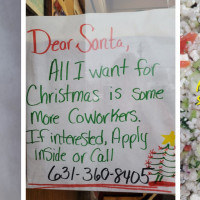 Dear Santa,
All I want for
Christmas is some
More Coworkers.
If interested, Apply
inside or Call
631-360-8405